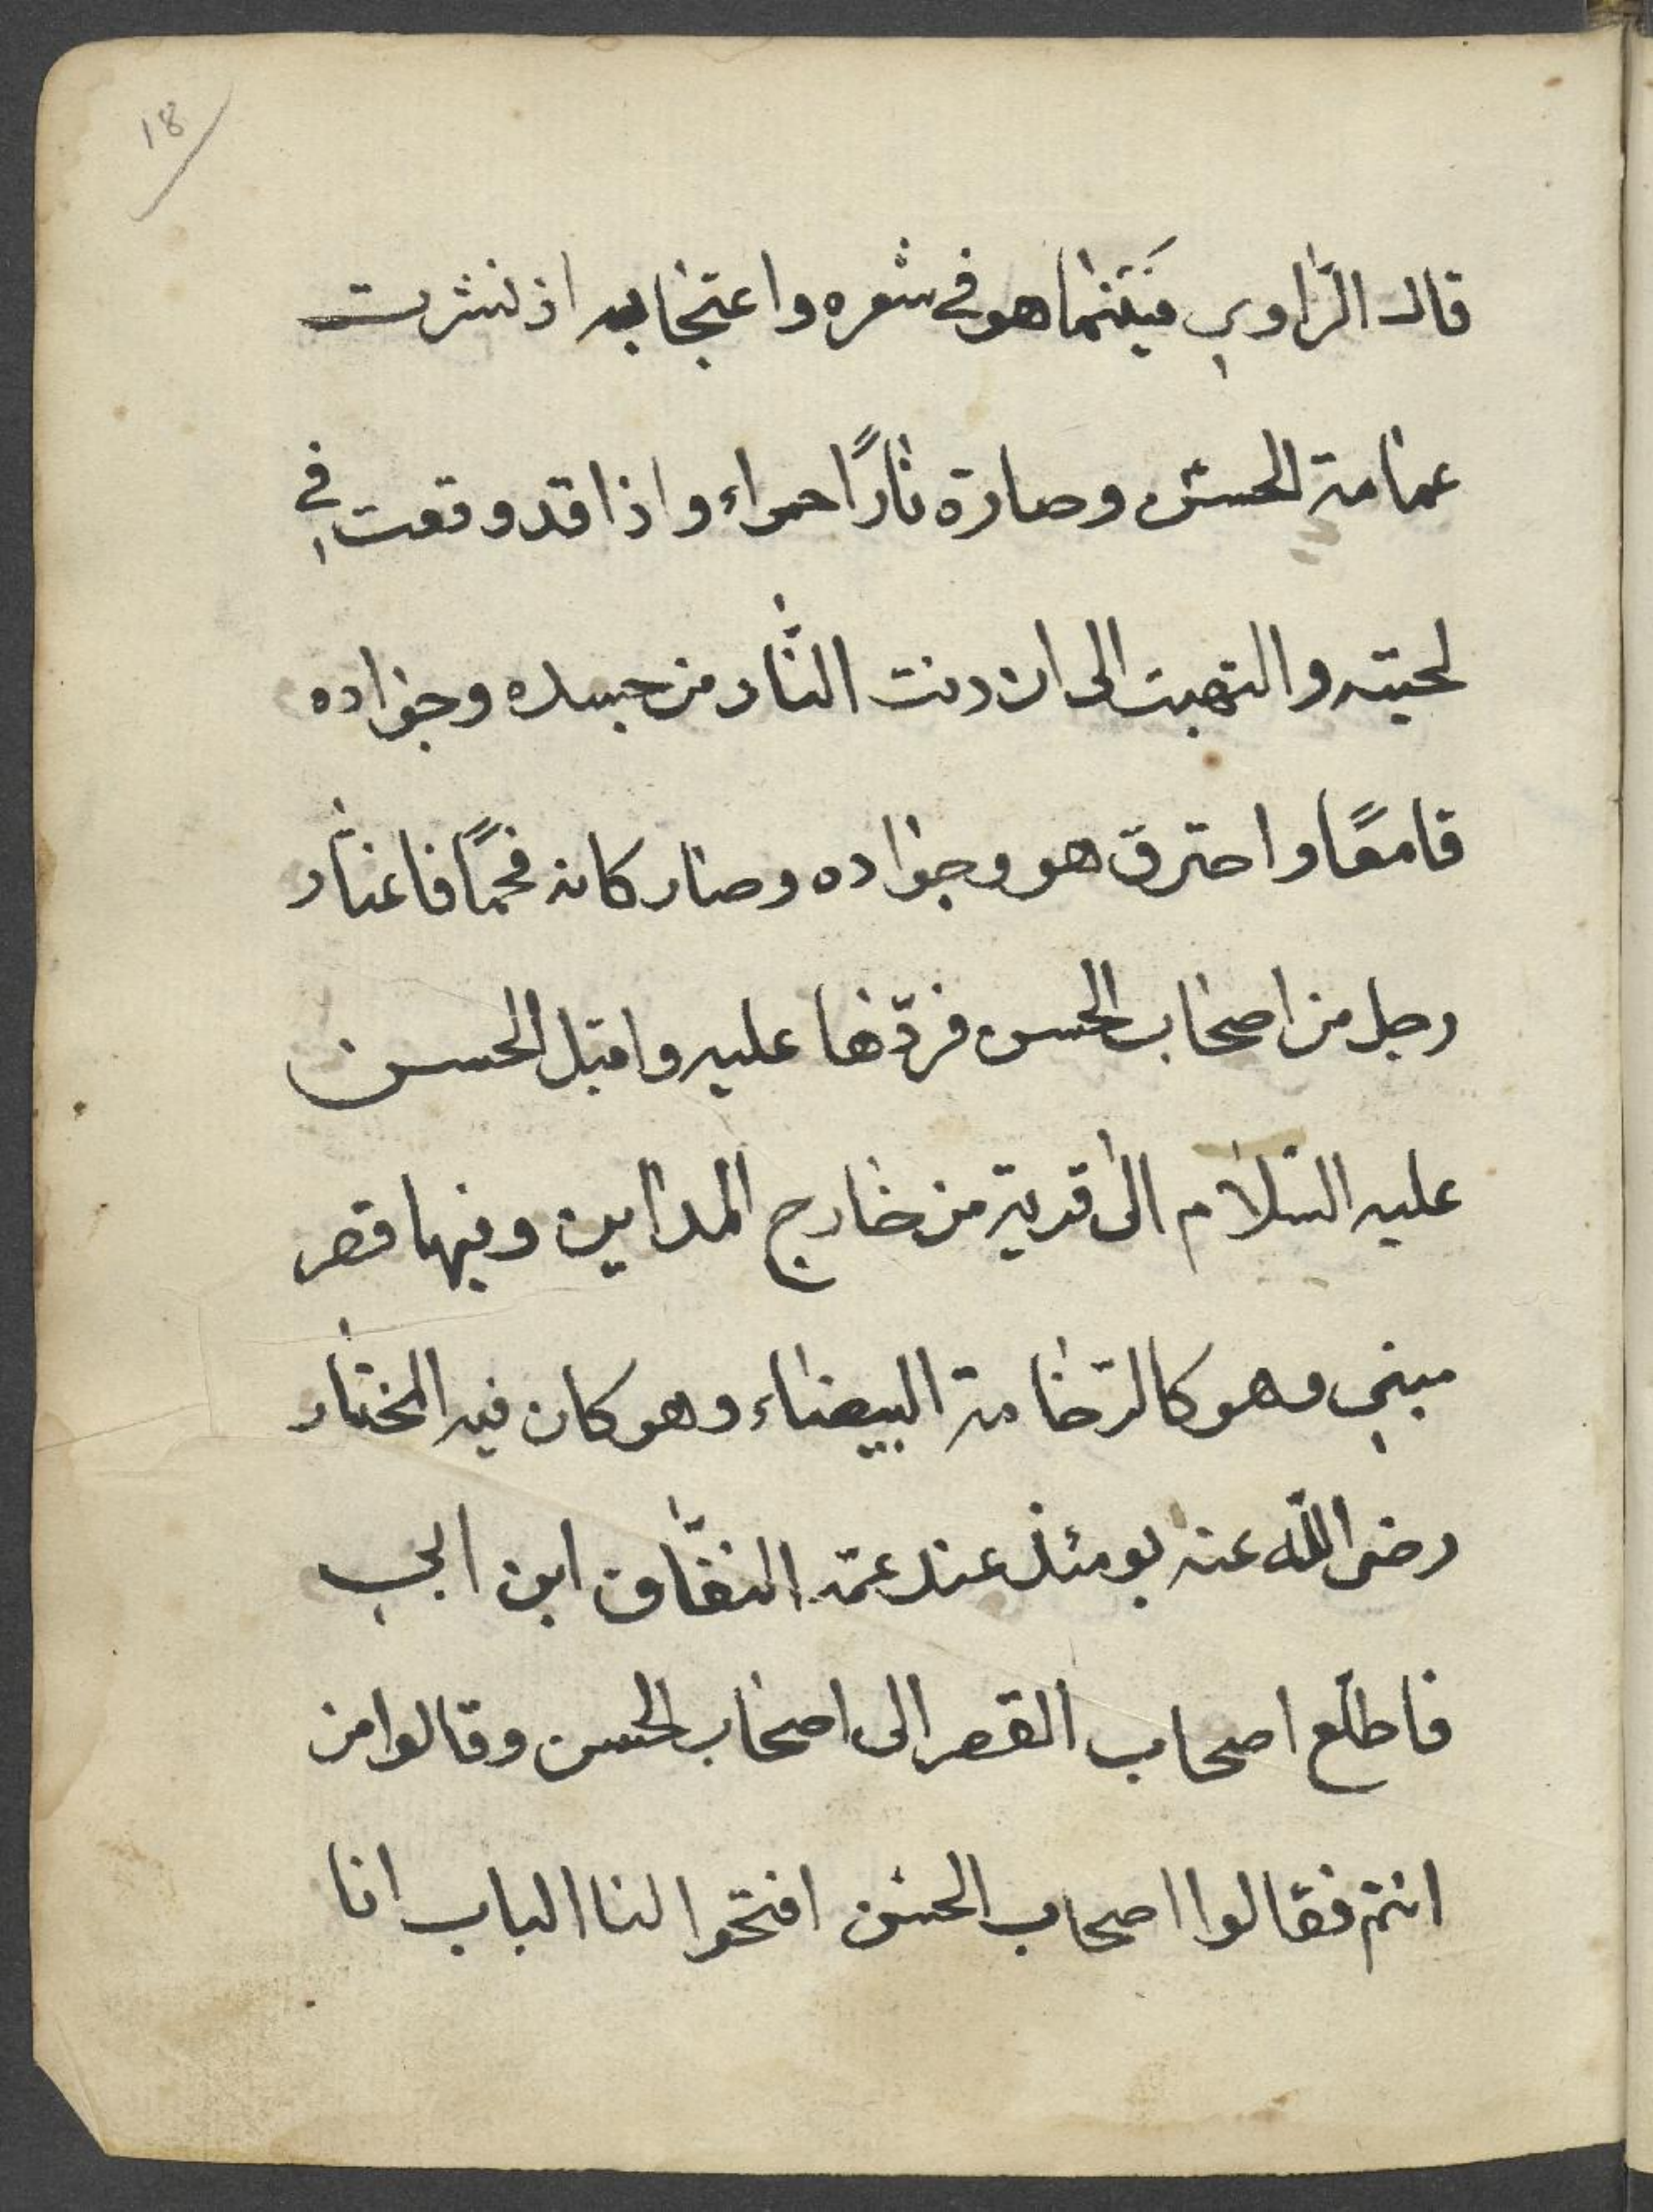 18
قال الراوي فَبَيْنَما هو في شعره واعتجابه اذ نشرت
عمامة الحسن وصارة نارًا حمراء واذا قد وقعت في
لحيته والتهبت الى ان دنت النّار من جسده وجواده
قامعًا واحترق هو وجواده وصار كانه فحمًا فاغار
رجل من اصحاب الحسن فردّها عليه واقبل الحسن
عليه السّلام الى قرية من خارج المداين وفيها قصر
مبني وهو كالرّخامة البيضاء وهو كان فيه المختار
رضى الله عنه يومئذ عند عمّه النفّاق ابن ابي
فاطلّع اصحاب القصر الى اصحاب الحسن وقالوا من
انتم فقالوا اصحاب الحسن افتحوا لنا الباب انا